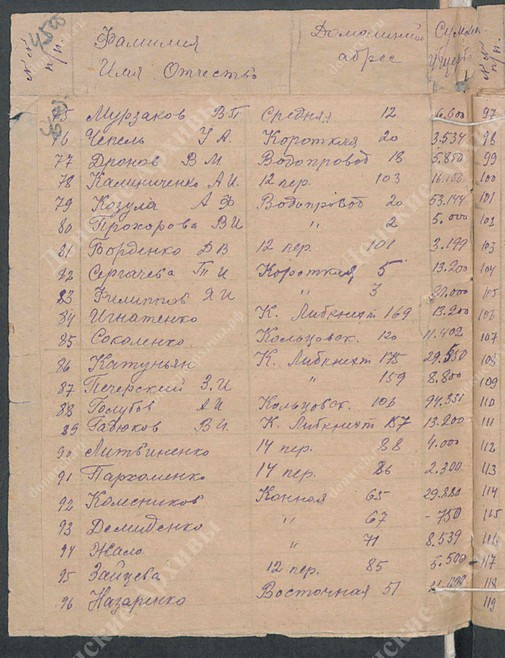 №№ п/п. Фамилия Имя Отчество Домашний адрес Сумма ущерба №№ п/п.
75 Мурзаков В П Средняя 12 6.600 97
76 Чепель У А. Короткая 20 3.534 98
77 Дронов В М Водопровод 18 5.850 99
78 Калиниченко А И. 12 пер. 103 16.150 100
79 Козула А Ф Водопровод 20 53.144 101
80 Прохорова В И " 2 5.000 102
81 Борденко Д В 12 пер. 101 3.199 103
82 Сергачева Т И Короткая 5 13.200 104
83 Филиппов Я И " 3 105
84 Игнатенко К. Либкнехт 169 13.200 106
85 Соколенко Кольцовск. 120 11.402 107
86 Катуньян К. Либкнехт 175 29.550 108
87 Печерский З. И " 159 8.800 109
88 Голубов Кольцовск. 106 94.351 110
89 Гадюков В И. К. Либкнехт 157 13.200 111
90 Литвиненко 14 пер. 88 4.000 112
91 Пархоменко 14 пер. 86 2.300 113
92 Колесников Конная 65 29.880 114
93 Демиденко " 67 - 750 115
94 Жало " 71 8.539 116
95 Зайцева 12 пер. 85 5.500 117
96 Назаренко Восточная 51 118
119